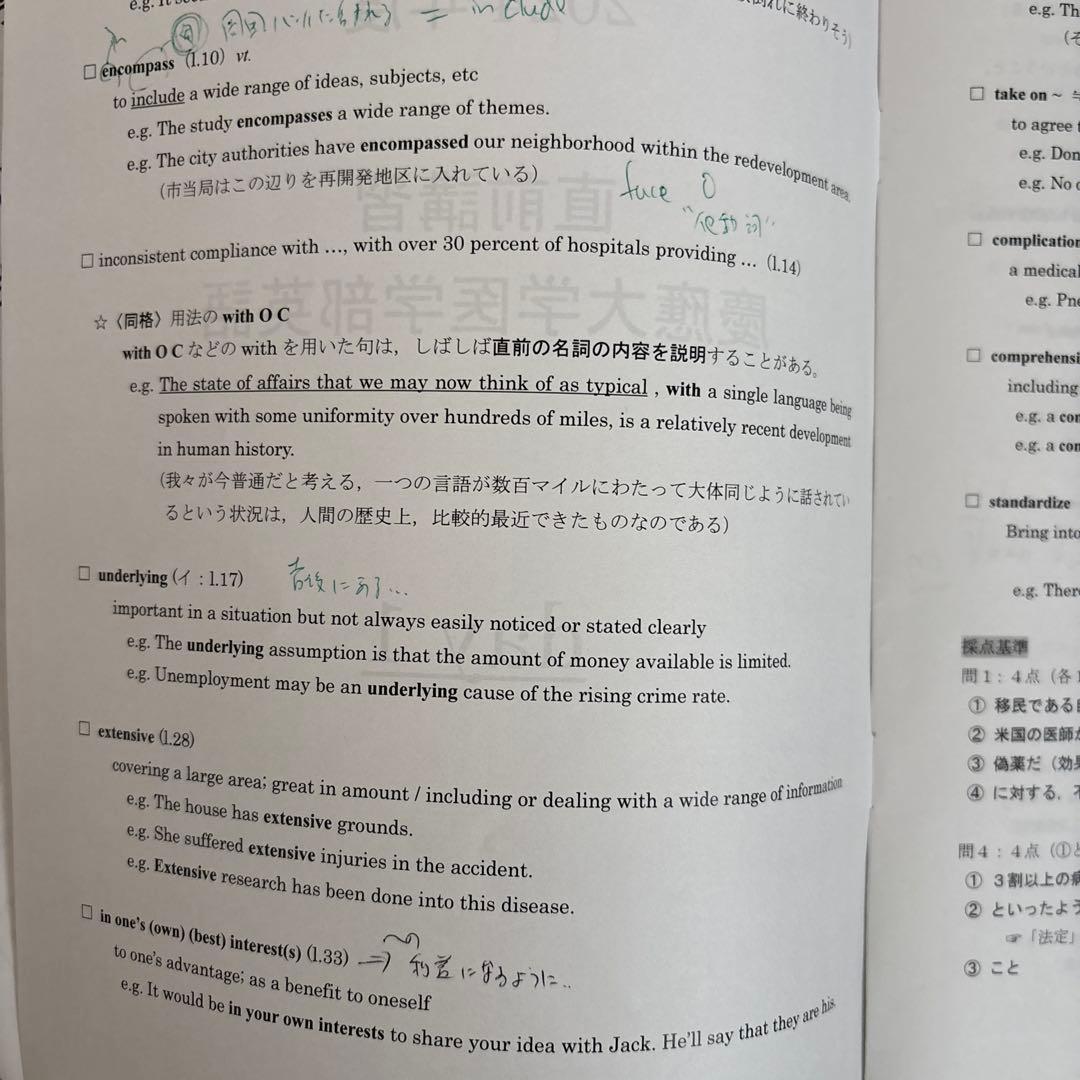 e.g. It
に終わりそう)
= include
□ encompass (l.10) vt.
to include a wide range of ideas, subjects, etc
e.g. The study encompasses a wide range of themes.
e.g. The city authorities have encompassed our neighborhood within the redevelopment area.
(市当局はこの辺りを再開発地区に入れている)
face O
"他動詞"
□ inconsistent compliance with …, with over 30 percent of hospitals providing … (l.14)
☆〈同格〉用法の with O C
with O C などの with を用いた句は，しばしば直前の名詞の内容を説明することがある。
e.g. The state of affairs that we may now think of as typical , with a single language being
spoken with some uniformity over hundreds of miles, is a relatively recent development
in human history.
(我々が今普通だと考える，一つの言語が数百マイルにわたって大体同じように話されてい
るという状況は，人間の歴史上，比較的最近できたものなのである)
□ underlying (イ : l.17)
背後にある...
important in a situation but not always easily noticed or stated clearly
e.g. The underlying assumption is that the amount of money available is limited.
e.g. Unemployment may be an underlying cause of the rising crime rate.
□ extensive (l.28)
covering a large area; great in amount / including or dealing with a wide range of information
e.g. The house has extensive grounds.
e.g. She suffered extensive injuries in the accident.
e.g. Extensive research has been done into this disease.
□ in one's (own) (best) interest(s) (l.33) ⇒ 〜の利益になるように..
to one's advantage; as a benefit to oneself
e.g. It would be in your own interests to share your idea with Jack. He'll say that they are his.
e.g. Th
(そ
□ take on ~ ≒
to agree t
e.g. Don
e.g. No c
□ complication
a medical
e.g. Pne
□ comprehensi
including
e.g. a con
e.g. a con
□ standardize
Bring into
e.g. There
採点基準
問1：4点（各1
① 移民である
② 米国の医師が
③ 偽薬だ（効果
④ に対する，不
問4：4点（①と
① 3割以上の病
② といったよう
☞「法定」
③ こと